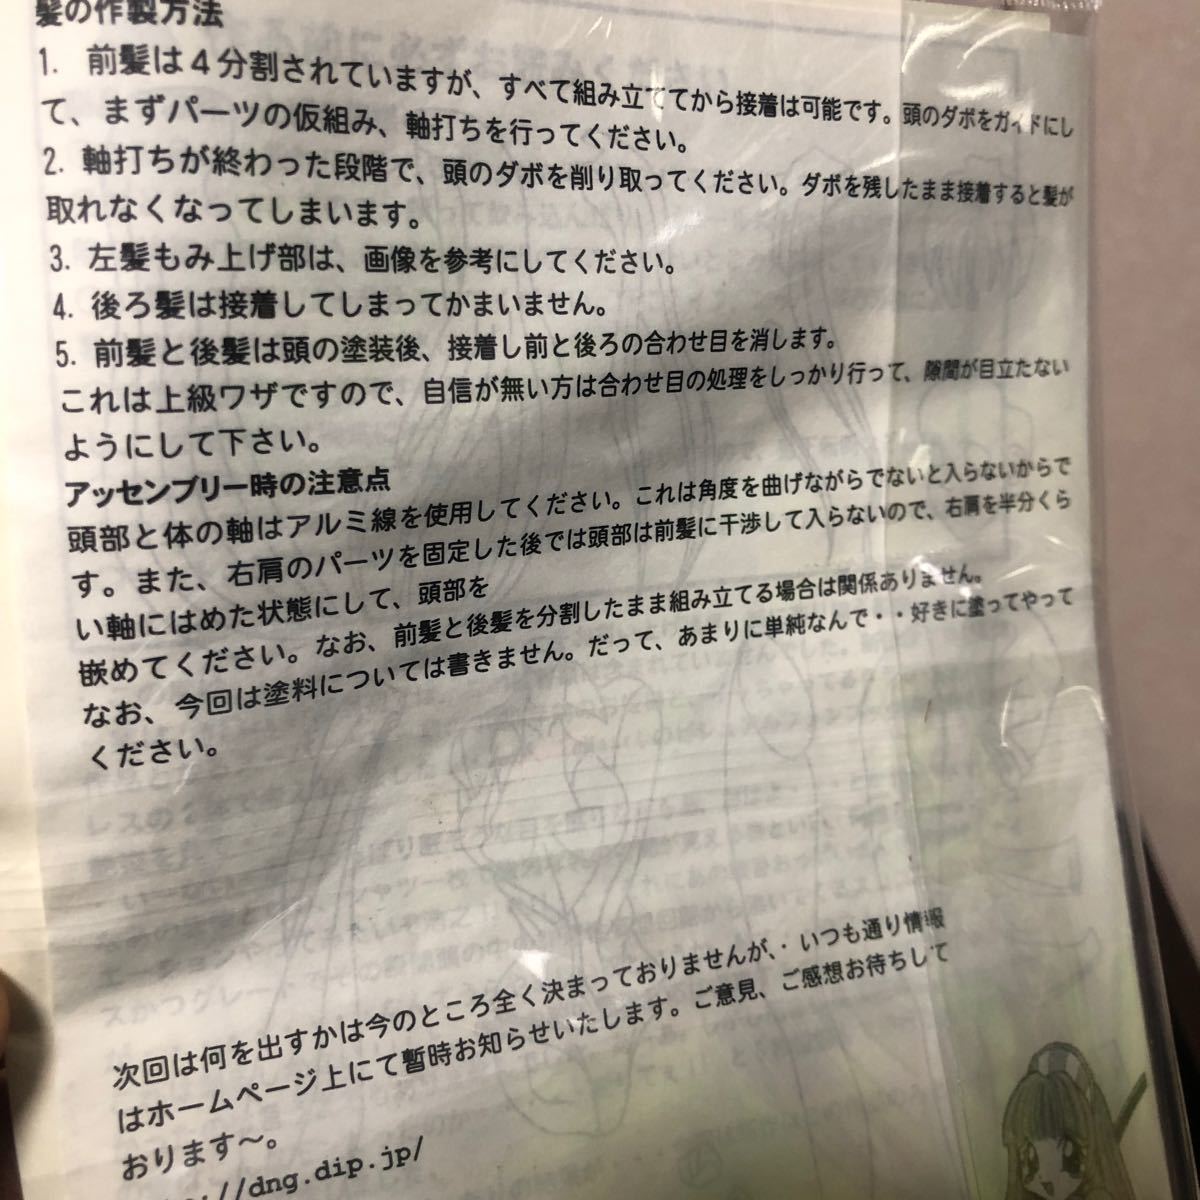 髪の作製方法
1. 前髪は４分割されていますが、すべて組み立ててから接着は可能です。頭のダボをガイドにし
て、まずパーツの仮組み、軸打ちを行ってください。
2. 軸打ちが終わった段階で、頭のダボを削り取ってください。ダボを残したまま接着すると髪が
取れなくなってしまいます。
3. 左髪もみ上げ部は、画像を参考にしてください。
4. 後ろ髪は接着してしまってかまいません。
5. 前髪と後髪は頭の塗装後、接着し前と後ろの合わせ目を消します。
これは上級ワザですので、自信が無い方は合わせ目の処理をしっかり行って、隙間が目立たない
ようにして下さい。
アッセンブリー時の注意点
頭部と体の軸はアルミ線を使用してください。これは角度を曲げながらでないと入らないからで
す。また、右肩のパーツを固定した後では頭部は前髪に干渉して入らないので、右肩を半分くら
い軸にはめた状態にして、頭部を
嵌めてください。なお、前髪と後髪を分割したまま組み立てる場合は関係ありません。
なお、今回は塗料については書きません。だって、あまりに単純なんで・・好きに塗ってやって
ください。
次回は何を出すかは今のところ全く決まっておりませんが、・いつも通り情報
はホームページ上にて暫時お知らせいたします。ご意見、ご感想お待ちして
おります～。
://dng.dip.jp/